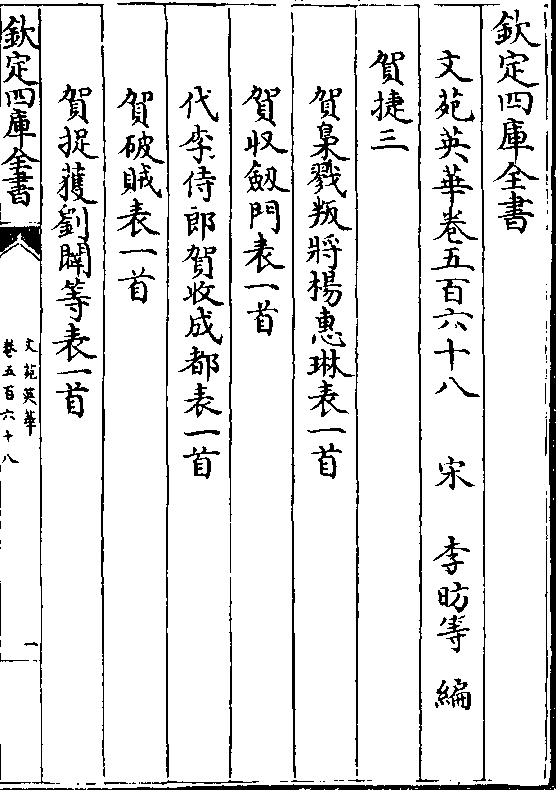 欽定四庫全書
文苑英華卷五百六十八 宋 李昉等 編
賀捷三
賀梟戮叛將楊惠琳表一首
賀收劒門表一首
代李侍郎賀收成都表一首
賀破賊表一首
賀捉獲劉闢等表一首
欽定四庫全書
文苑英華
卷五百六十八
一